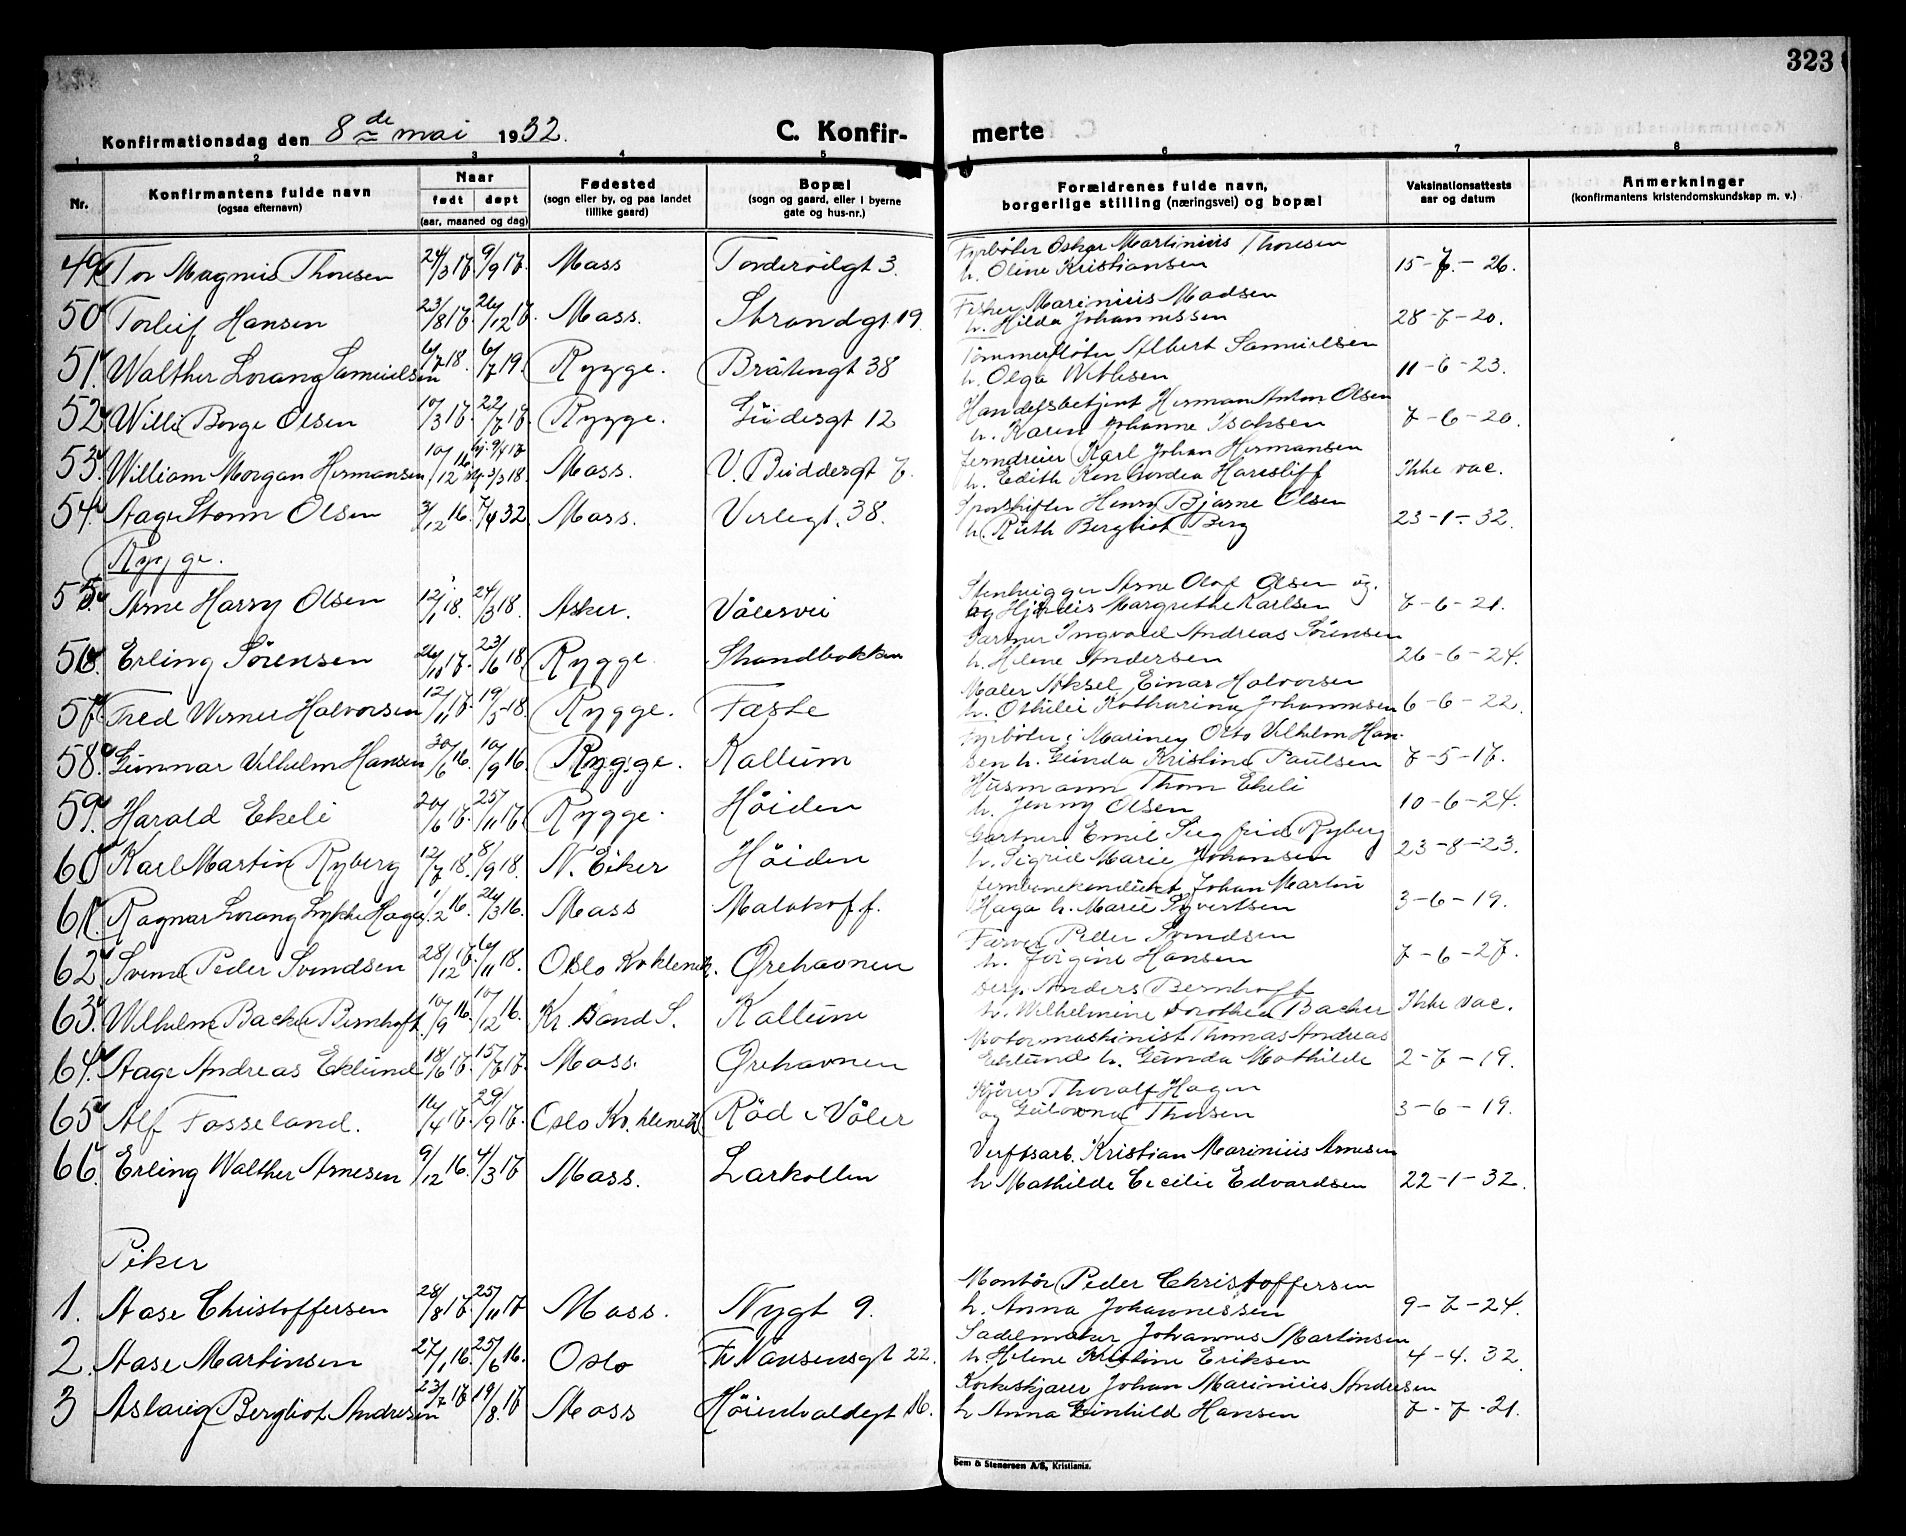 323
Konfirmationsdag den 8de mai 1932.
C. Konfir- merte
1 2 3 4 5 6 7 8
Nr.
Konfirmantens fulde navn
(ogsaa efternavn)
Naar
født
døpt
(aar, maaned og dag)
Fødested
(sogn eller by, og paa landet
tillike gaard)
Bopæl
(sogn og gaard, eller i byerne
gate og hus-nr.)
Forældrenes fulde navn,
borgerlige stilling (næringsvei) og bopæl
Vaksinationsattests
aar og datum
Anmerkninger
(konfirmantens kristendomskundskap m. v.)
49. Tor Magnus Thoresen 24/3 17. 9/9 17. Moss Tordenskiolgt 3. Fyrbøter Oskar Martinius Thoresen
h. Oline Kristiansen 15-7-26.
50 Torleif Hansen 23/8 17. 26/12 17. Moss. Strandgt. 19 Fisker Marinius Madsen
h. Hilda Johannessen 28-7-20.
51. Walther Lorang Samuelsen 6/7 18. 6/7 19. Rygge. Bråtengt 38 Tømmerfløter Albert Samuelsen
h. Olga Nilsen 11-6-23.
52 Willi Borge Olsen 10/3 17. 22/7 17. Rygge. Gudesgt 12 Handelsbetjent Herman Anton Olsen
h. Karen Johanne Isaksen 7-6-20.
53. William Morgan Hermansen 10/12 16. Moss. V. Buddesgt 7. Jerndreier Karl Johan Hermansen
h. Edith 	Ikke vac.
54. Aage Storm Olsen 3/12 16. 7/4 32 Moss. Verlegt. 38. Henry Bjarne Olsen
h. Ruth Bergliot Berg 23-1-32.
Rygge.
55. Arne Harry Olsen 12/1 18. 24/3 18. Asker. Vålervei Stenhugger Arne Olaf Olsen og
og Hjørdis Margrethe Karlsen 7-6-21.
56. Erling Sørensen 26/10 17. 23/6 18 Rygge Strandbakken Gartner Ingvald Andreas Sørensen
h. Helene Andersen 26-6-24.
57. Fred Werner Halvorsen 12/11 17. 19/5 18. Rygge. Faste Maler Aksel Einar Halvorsen
h. Othilie Katharina Johannesen 6-6-22.
58. Gunnar Vilhelm Hansen 30/6 16. 10/9 16. Rygge. Kallum Fyrbøter i Marinen Otto Vilhelm Han-
sen h. Gunda Kristine Paulsen 7-5-17.
59. Harald Ekeli 20/6 17. 25/11 17. Rygge. Høiden Husmann Thom Ekeli
h. Jenny Olsen 10-6-24.
60 Karl Martin Ryberg 12/7 18. 8/9 18. N. Eiker Høiden Gartner Emil Siegfried Ryberg
h. Sigrid Marie Johansen 23-8-23.
61. Ragnar Lorang Lykke Haga 1/2 16. 26/3 16. Moss Malakoff. Jernbanekonduktør Johan Martin
Haga h. Marie Syvertsen 3-6-19.
62. Svend Peder Svendsen 28/12 17. 6/11 18. Oslo Kv.klinik. Ørehavnen Farver Peder Svendsen
h. Jørgine Hansen 7-6-27.
63. Wilhelm Backer Bernhoft 10/9 16. 10/12 16. Kr.sand S. Kallum Anders Bernhoft
h. Wilhelmine Dorothea Backer Ikke vac.
64. Aage Andreas Eklund 18/6 17. 15/7 17. Moss. Ørehavnen Motormaskinist Thomas Andreas
Eklund h. Gunda Mathilde 2-7-19.
65. Alf Fosseland. 16/4 17. 29/9 17. Oslo Kv.klinik Rød i Våler Kjører Thoralf Hagen
og Gulovna Thorsen 3-6-19.
66. Erling Walther Arnesen 9/12 16. 4/3 17 Moss. Larkollen Verftsarb. Kristian Marinius Arnesen
h Mathilde Cecilie Edvardsen 22-1-32.
Piker
1. Aase Christoffersen 28/8 17. 25/11 17 Moss. Nygt 9. Montør Peder Christoffersen
h. Anna Johannessen 9-7-24.
2. Aase Martinsen 27/1 16. 25/6 16. Oslo Fr. Nansensgt 22. Sadelmaker Johannes Martinsen
h. Helene Kristine Eriksen 4-4.32
3 Aslaug Bergliot Andresen 23/7 17 19/8. 17 Moss Høienhaldsgt 16. Korkeskjærer Johan Marinius Andresen
h Anna Gunhild Hansen 7-7-21.
Sem & Stenersen A/S, Kristiania.